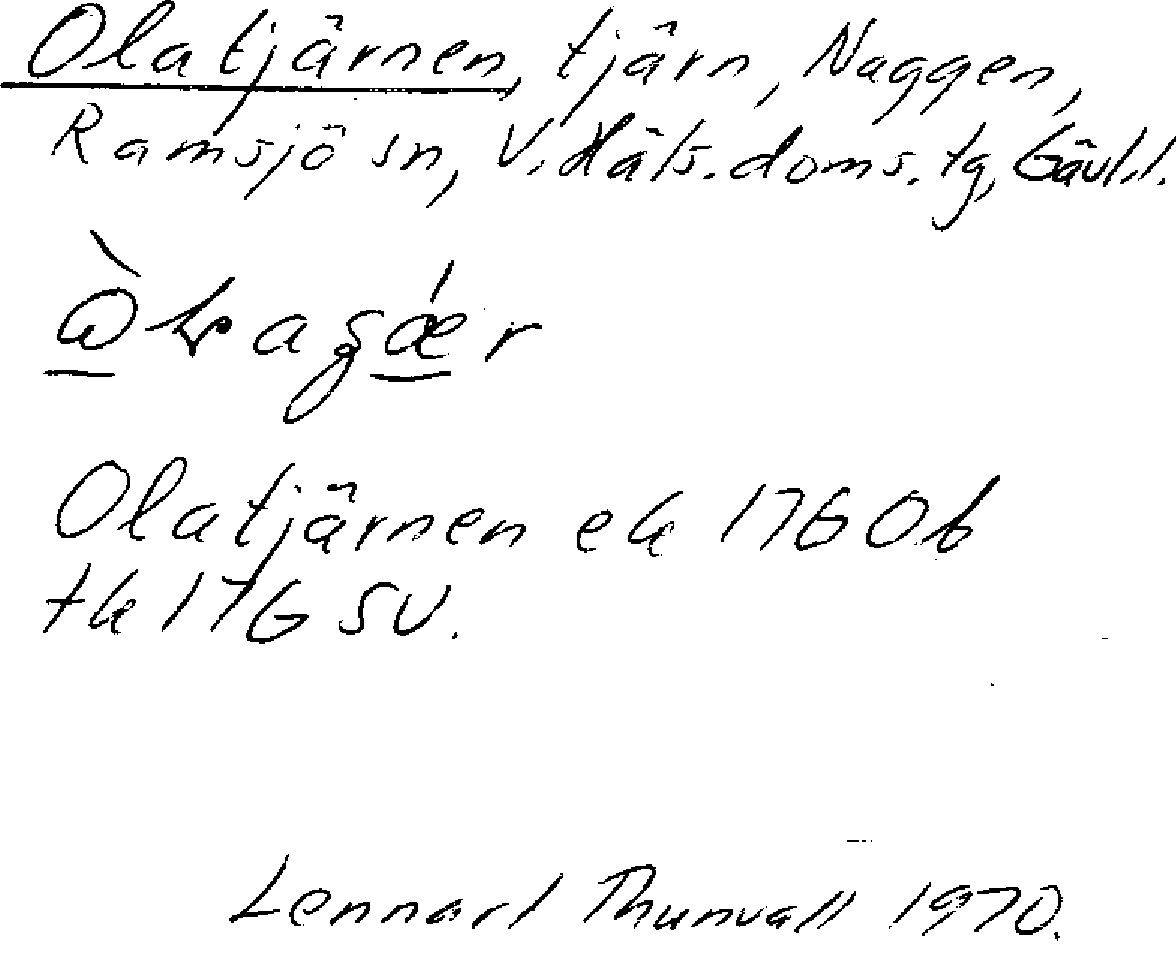 Olatjärnen, tjärn, Naggen,
Ramsjö sn, V. Häls. doms. tg, Gävl.l.
Olatjärnen ek 17G 0b
tk 17G SV.
Lennart Thunvall 1970.